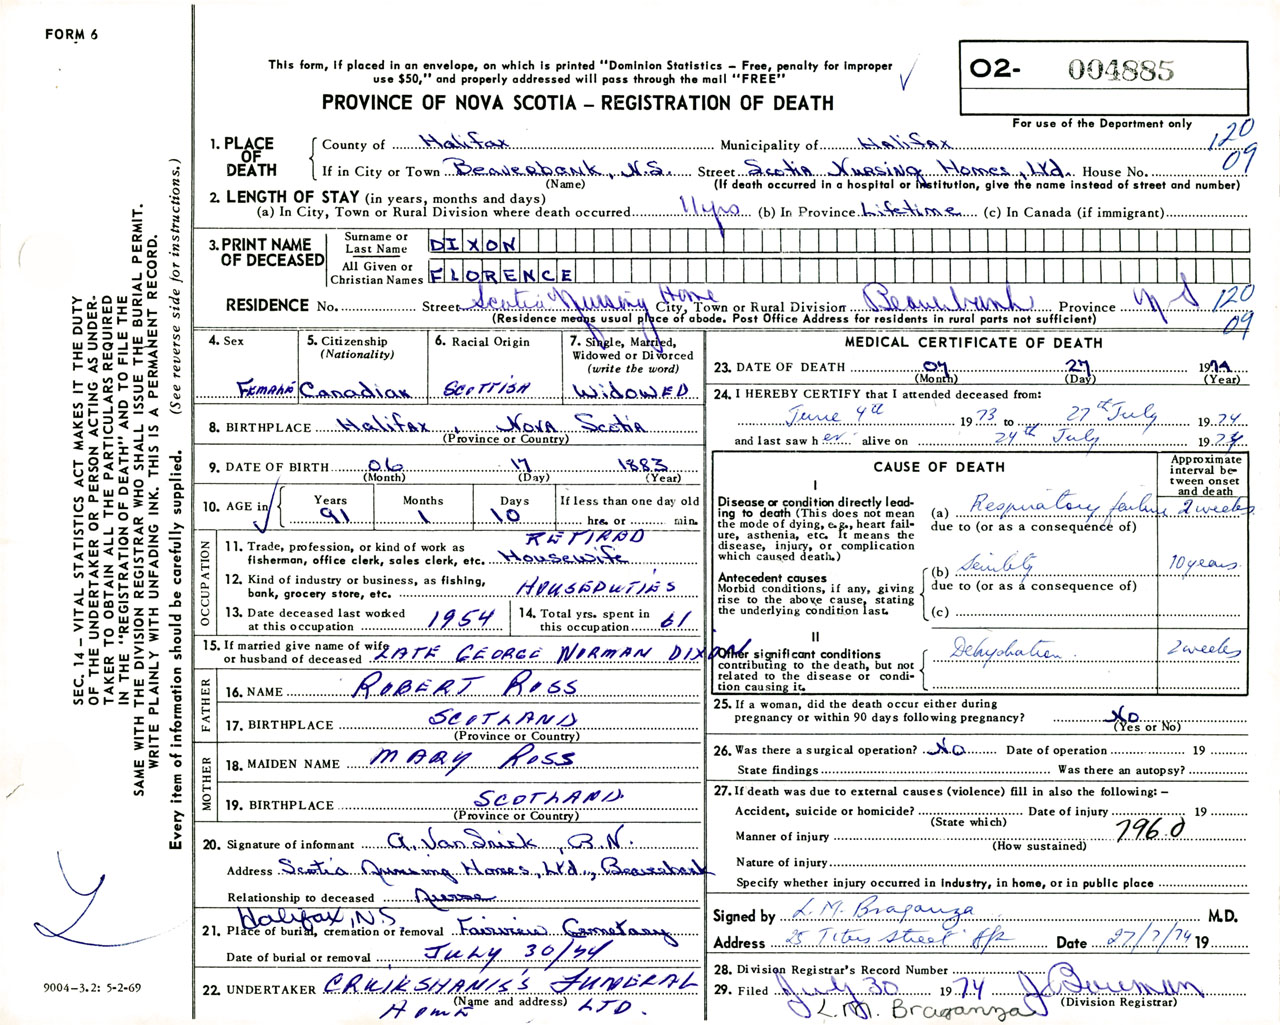 FORM 6
This form, if placed in an envelope, on which is printed "Dominion Statistics – Free, penalty for improper
use $50," and properly addressed will pass through the mail "FREE"
PROVINCE OF NOVA SCOTIA – REGISTRATION OF DEATH
02- 004885
For use of the Department only
SEC. 14 – VITAL STATISTICS ACT MAKES IT THE DUTY
OF THE UNDERTAKER OR PERSON ACTING AS UNDER-
TAKER TO OBTAIN ALL THE PARTICULARS REQUIRED
IN THE "REGISTRATION OF DEATH" AND TO FILE THE
SAME WITH THE DIVISION REGISTRAR WHO SHALL ISSUE THE BURIAL PERMIT.
WRITE PLAINLY WITH UNFADING INK. THIS IS A PERMANENT RECORD.
Every item of information should be carefully supplied. (See reverse side for instructions.)
1. PLACE OF DEATH
County of Halifax Municipality of Halifax 120
If in City or Town Beaverbank, N.S. Street Scotia Nursing Homes, Ltd. House No. 09
(Name) (If death occurred in a hospital or institution, give the name instead of street and number)
2. LENGTH OF STAY (in years, months and days)
(a) In City, Town or Rural Division where death occurred 11yrs (b) In Province Lifetime (c) In Canada (if immigrant)
3. PRINT NAME OF DECEASED
Surname or Last Name DIXON
All Given or Christian Names FLORENCE
RESIDENCE No. Street Scotia Nursing Home City, Town or Rural Division Beaverbank Province N S 120
(Residence means usual place of abode. Post Office Address for residents in rural parts not sufficient) 09
4. Sex Female
5. Citizenship (Nationality) Canadian
6. Racial Origin SCOTTISH
7. Single, Married, Widowed or Divorced (write the word) WIDOWED
8. BIRTHPLACE Halifax, Nova Scotia
(Province or Country)
9. DATE OF BIRTH 06 17 1883
(Month) (Day) (Year)
10. AGE in Years 91 Months 1 Days 10 If less than one day old hrs. or min.
OCCUPATION
11. Trade, profession, or kind of work as fisherman, office clerk, sales clerk, etc. RETIRED Housewife
12. Kind of industry or business, as fishing, bank, grocery store, etc. HOUSEDUTIES
13. Date deceased last worked at this occupation 1954
14. Total yrs. spent in this occupation 61
15. If married give name of wife or husband of deceased LATE GEORGE NORMAN DIXON
FATHER
16. NAME ROBERT ROSS
17. BIRTHPLACE SCOTLAND
(Province or Country)
MOTHER
18. MAIDEN NAME MARY ROSS
19. BIRTHPLACE SCOTLAND
(Province or Country)
20. Signature of informant
Address Scotia Nursing Homes, Ltd., Beaverbank
Relationship to deceased Nurse
Halifax, N.S
21. Place of burial, cremation or removal Fairview Cemetary
Date of burial or removal JULY 30/74
22. UNDERTAKER CRUIKSHANK'S FUNERAL
(Name and address)
HOME LTD.
9004–3.2: 5-2-69
MEDICAL CERTIFICATE OF DEATH
23. DATE OF DEATH 07 27 1974
(Month) (Day) (Year)
24. I HEREBY CERTIFY that I attended deceased from:
June 4th 1973 to 27th July 1974
and last saw her alive on 24th July 1974
CAUSE OF DEATH
Approximate interval between onset and death
I
Disease or condition directly lead-
ing to death (This does not mean
the mode of dying, e.g., heart fail-
ure, asthenia, etc. It means the
disease, injury, or complication
which caused death.)
(a) Respiratory failure 2 weeks
due to (or as a consequence of)
Antecedent causes
Morbid conditions, if any, giving
rise to the above cause, stating
the underlying condition last.
(b) Senility 10 years
due to (or as a consequence of)
(c)
II
Other significant conditions
contributing to the death, but not
related to the disease or condi-
tion causing it.
Dehydration 2 weeks
25. If a woman, did the death occur either during
pregnancy or within 90 days following pregnancy? No
(Yes or No)
26. Was there a surgical operation? No Date of operation 19
State findings Was there an autopsy?
27. If death was due to external causes (violence) fill in also the following: –
Accident, suicide or homicide? Date of injury 19
(State which)
Manner of injury 7960
(How sustained)
Nature of injury
Specify whether injury occurred in industry, in home, or in public place
Signed by L.M. Braganza M.D.
Address 25 Street Date 27/7/74 19
28. Division Registrar's Record Number
29. Filed July 30 1974
(Division Registrar)
L.M. Braganza